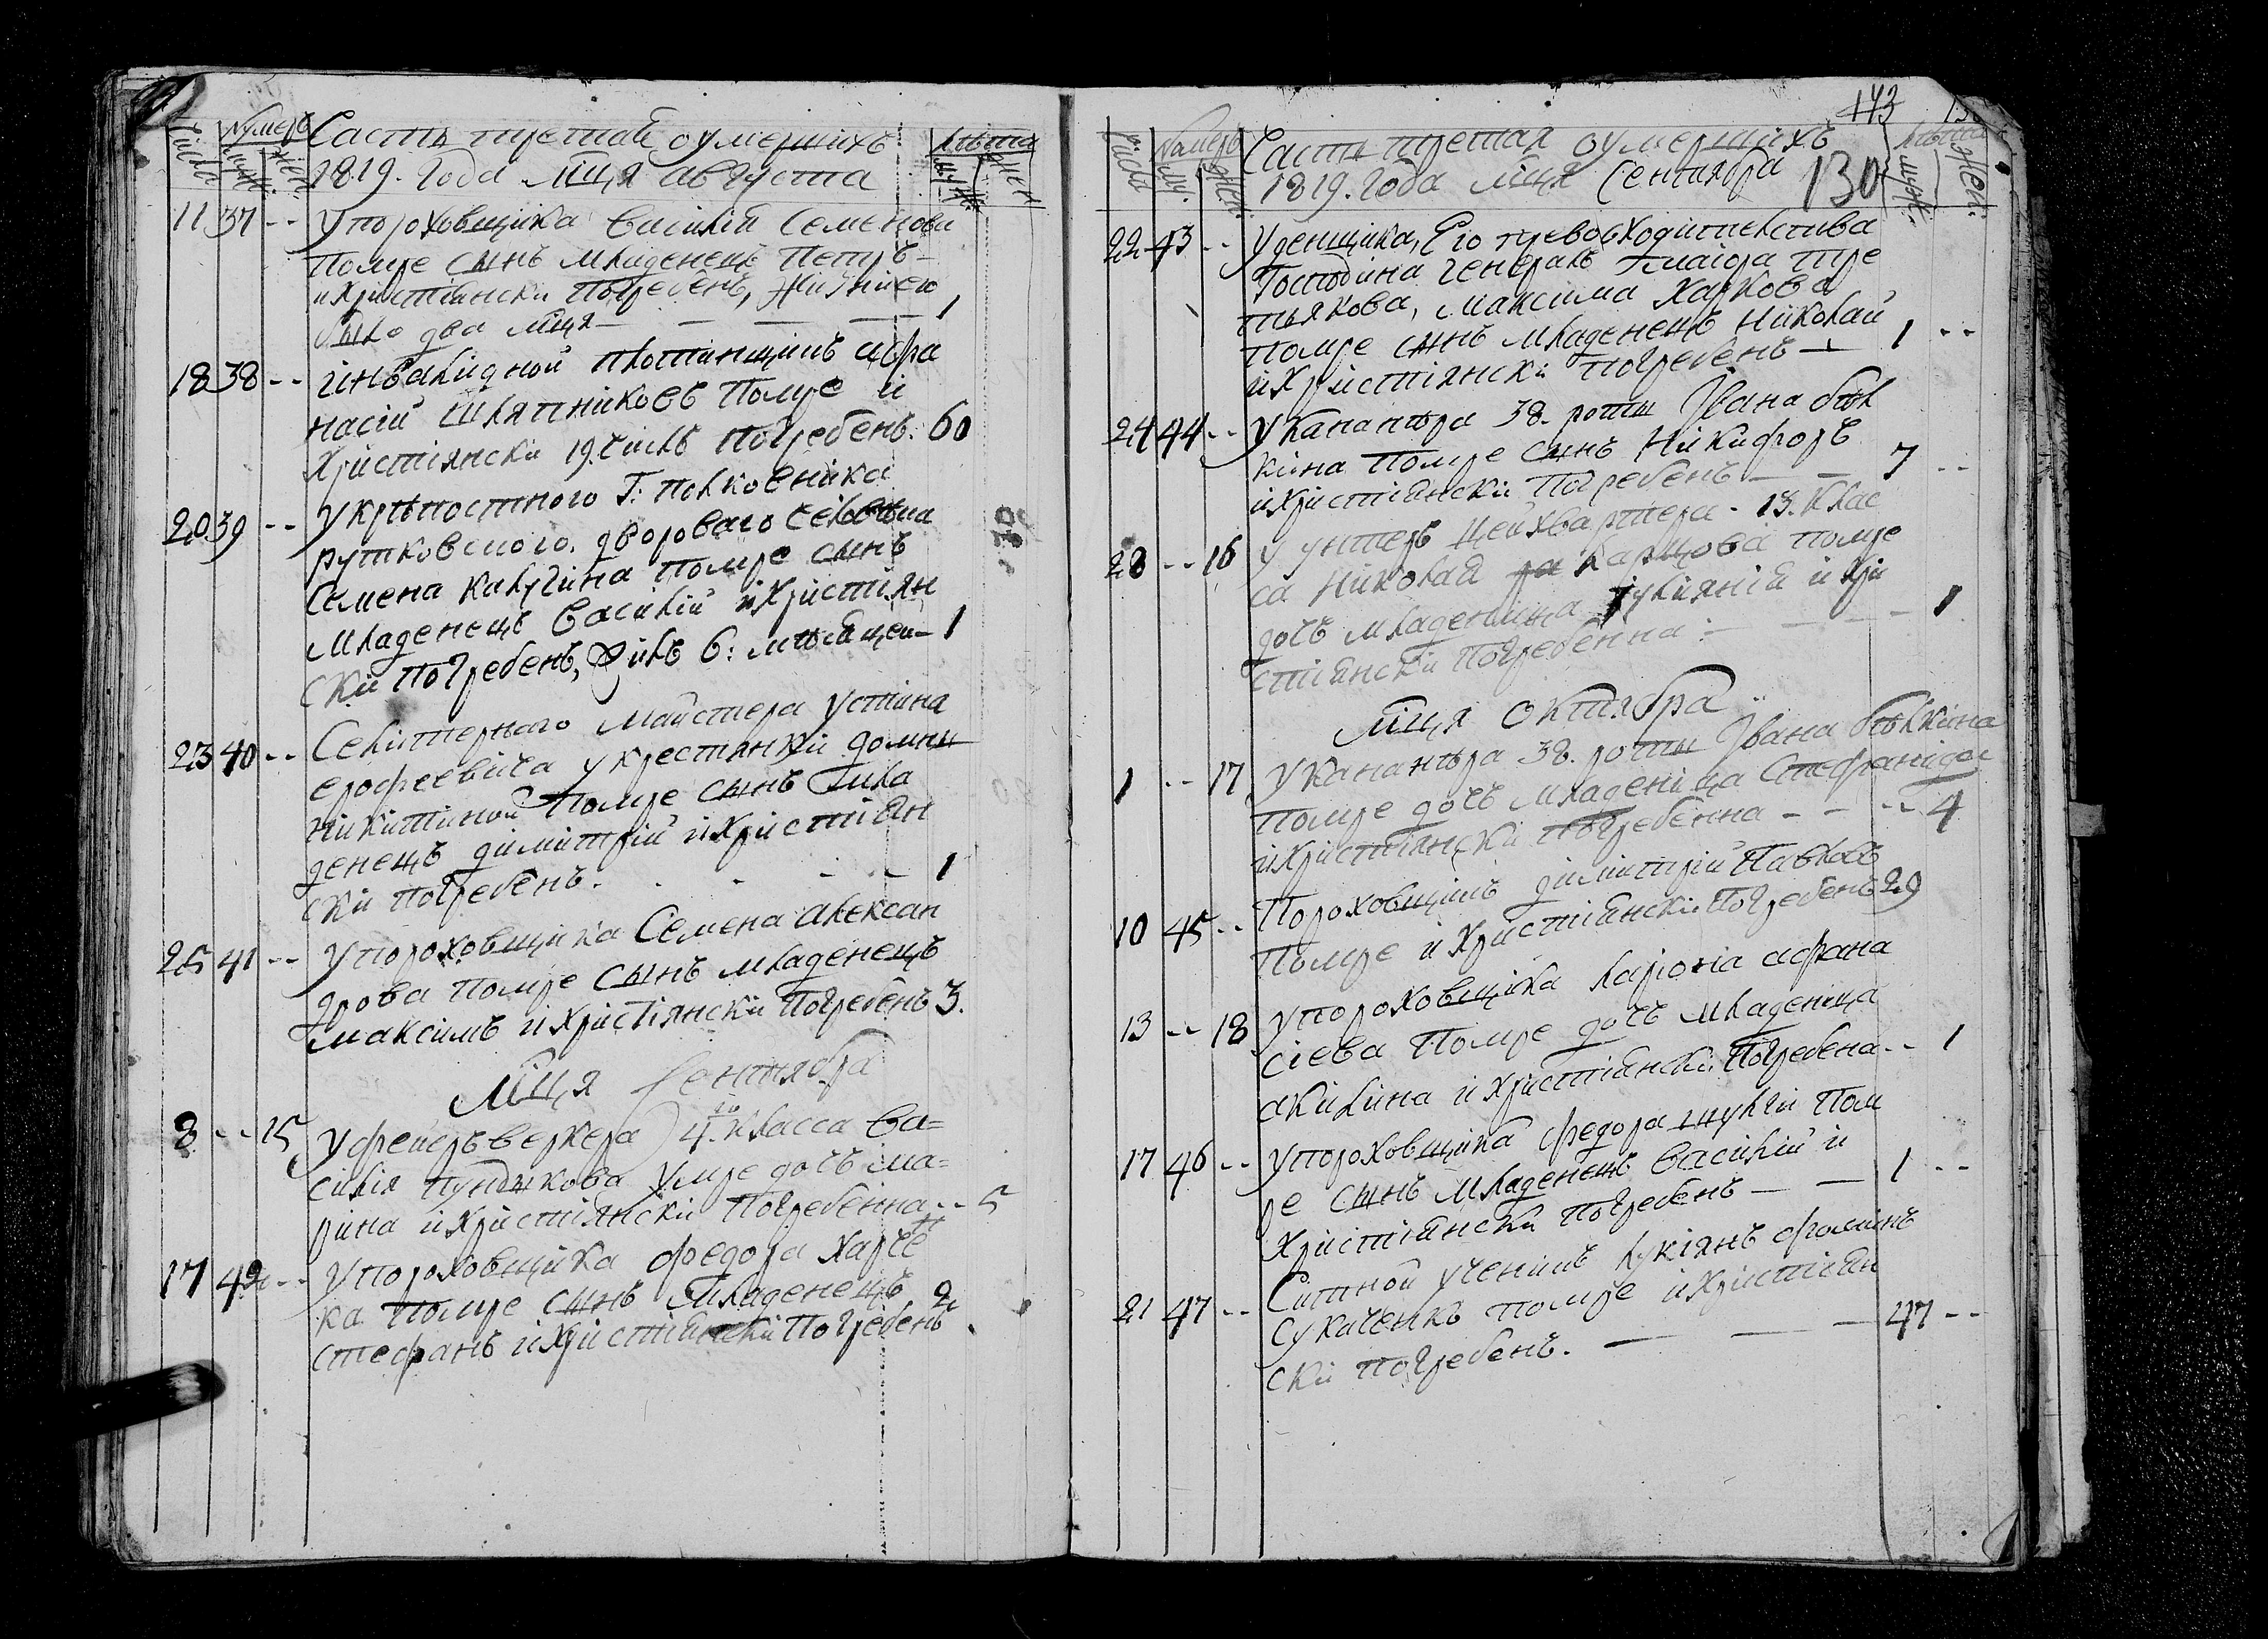 Числа Нумеръ Часть третая оумершихъ лѣта
муж. жен. 1819. года мца августа муж. жен
11 37 -- У пороховщика Василія Семенова
помре сынъ младенецъ Петръ
и христіянски погребенъ, жизни его
было два мца — — — 1
18 38 -- инвалидной плотинщикъ афа
насій Шляпниковъ помре и
христіянски 19. числъ погребенъ. 60
20 39 -- У крѣпостного Г: полковника
рутковского. двороваго человѣка
Семена калугина помре сынъ
младенецъ Василій и христіян
ски погребенъ, жилъ 6: мѣсяцей - 1
23 40 -- Селитерного майстера устина
ерофеевича у крестянки домны
никитиной помре сынъ мла
денецъ димитрій и христіян
ски погребенъ. - - - 1
25 41 -- У пороховщика Семена алексан
дрова помре сынъ младенецъ
максимъ и христіянски погребенъ 3.
Мца Сентября
8 -- 15 У фейеръверкера 4. класса Ва=
силія пундикова умре дочъ ма=
рина и христіянски погребенна -- 5
17 42 -- У пороховщика федора харче
ка помре сынъ младенецъ 2
стефанъ и христіянски погребенъ
143
Числа Нумеръ Часть третая оумершихъ лѣта
му. жен. 1819. года мца Сентября 130 муж. жен.
22 43 -- У денщика, Его превосходителства
Господина генералъ маіора тре
тьякова, максима харкова
помре сынъ младенецъ николай 1 --
и христіянски погребенъ —
24 44 -- У канантра 38. роты Івана бѣл
кина помре сынъ Никифоръ 7 --
и христіянски погребенъ — —
28 -- 16 У унтеръ цейхвартера. 13. клас
са николая карцова помре
дочъ младеница іуліянія и хри 1
стіянски погребенна: — —
Мца октября
1 -- 17 У канантра 38. роты Івана бѣлкина
помре дочъ младеница Стефанида
и христіянски погребенна - - -- 4
10 45 -- Пороховщикъ димитрій Павловъ
помре и христіянски погребенъ 29
13 -- 18 У пороховщика ларіона афана
сіева помре дочъ младеница
акилина и христіянски погребена -- 1
17 46 -- У пороховщика федора шулги пом
ре сынъ младенецъ Василій и 1 --
христіянски погребенъ — —
21 47 -- Ситной ученикъ лукіянъ фоминъ
Сукаченкъ помре и христіян
ски погребенъ. — — — 47 --